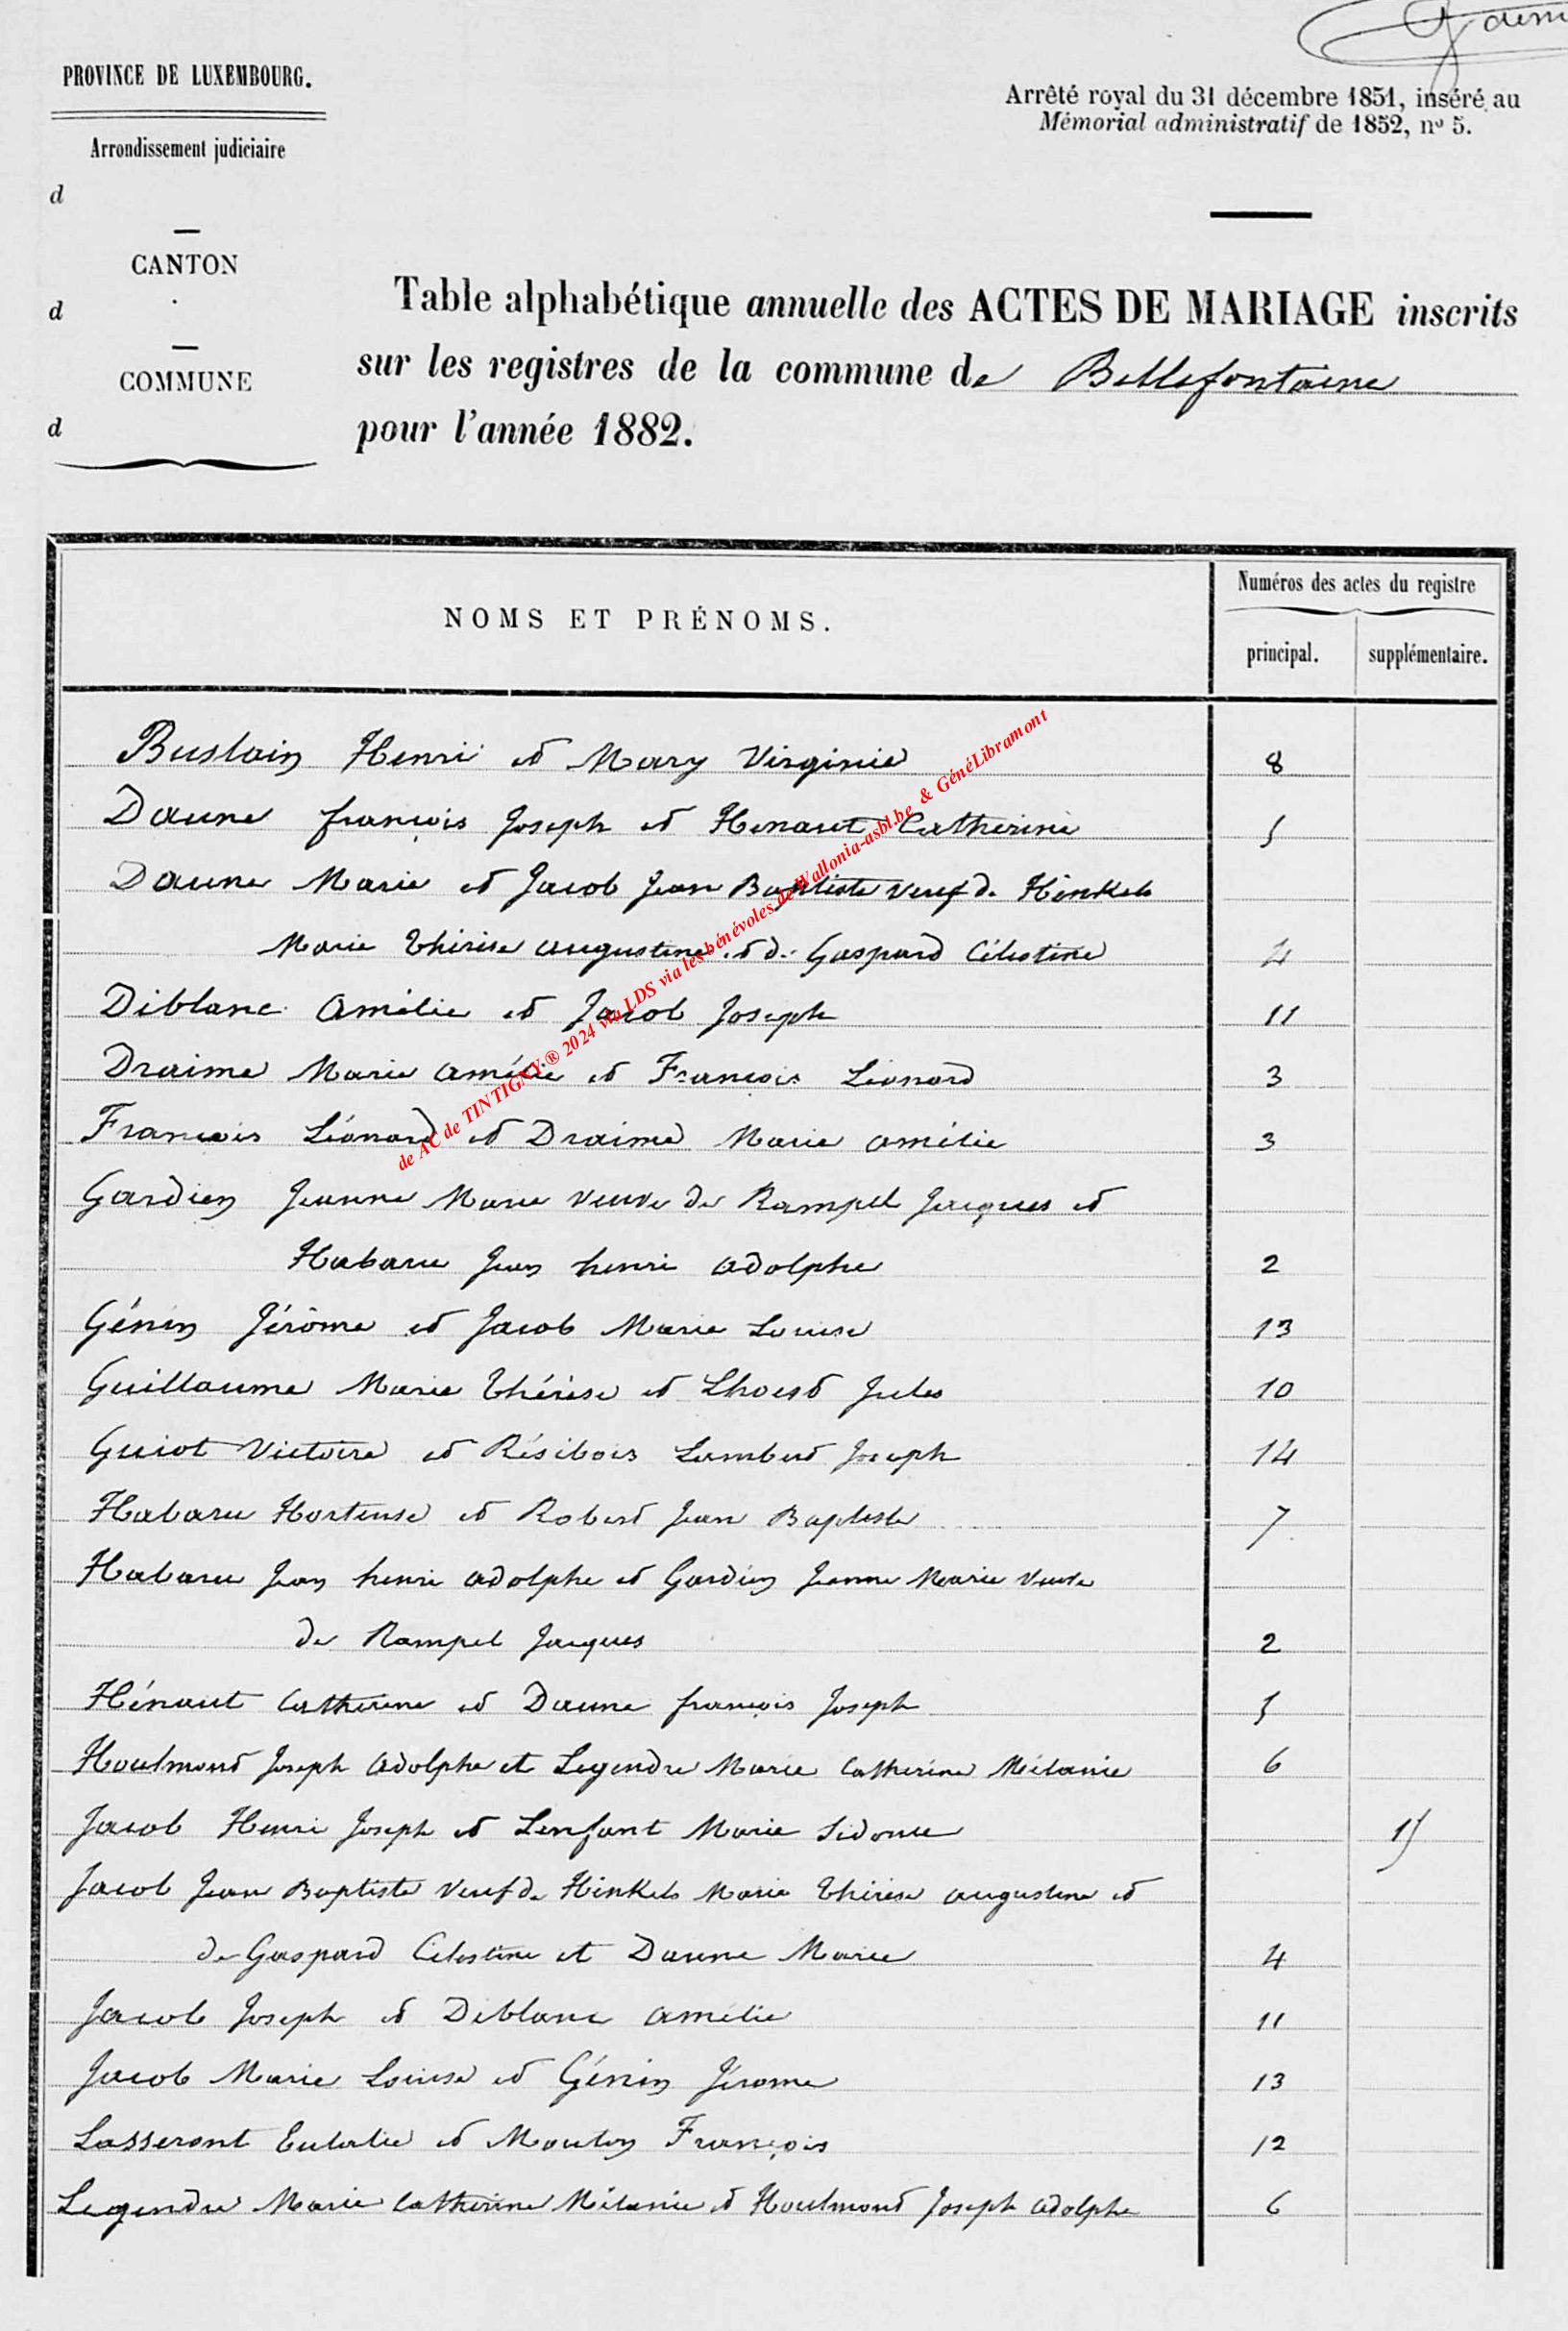 PROVINCE DE LUXEMBOURG.
Arrondissement judiciaire
d
CANTON
d
COMMUNE
d
Arrêté royal du 31 décembre 1851, inséré au
Mémorial administratif de 1852, nº 5.
Table alphabétique annuelle des ACTES DE MARIAGE inscrits
sur les registres de la commune de Bellefontaine
pour l'année 1882.
NOMS ET PRÉNOMS.
Numéros des actes du registre
principal. supplémentaire.
Buslain Henri et Mary Virginie 8
Daune françois Joseph et Henaut Catherine 5
Daune Marie et Jacob Jean Baptiste veuf de Hinkels
Marie Thérèse augustine et de Gaspard Célestine 4
Diblanc Amélie et Jacob Joseph 11
Draime Marie Amélie et François Léonard 3
François Léonard et Draime Marie amélie 3
Gardien Jeanne Marie veuve de Rampel Jacques et
Habaru Jean henri adolphe 2
Génin Jérôme et Jacob Marie Louise 13
Guillaume Marie Thérèse et Lhoest Jules 10
Guiot Victoire et Résibois Lambert Joseph 14
Habaru Hortense et Robert Jean Baptiste 7
Habaru Jean henri adolphe et Gardien Jeanne Marie Veuve
de Rampel Jacques 2
Hénaut Catherine et Daune françois Joseph 5
Houlmont Joseph Adolphe et Legendre Marie Catherine Mélanie 6
Jacob Henri Joseph et Lenfant Marie Sidonie 15
Jacob Jean Baptiste Veuf de Hinkels Marie Thérèse augustine et
de Gaspard Célestine et Daune Marie 4
Jacob Joseph et Diblanc amélie 11
Jacob Marie Louise et Génin Jérome 13
Lasseront Eulalie et Mouton François 12
Legendre Marie Catherine Mélanie et Houlmont Joseph adolphe 6
de AC de TINTIGNY ® 2024 via LDS via les bénévoles de Wallonia-asbl.be & GénéLibramont